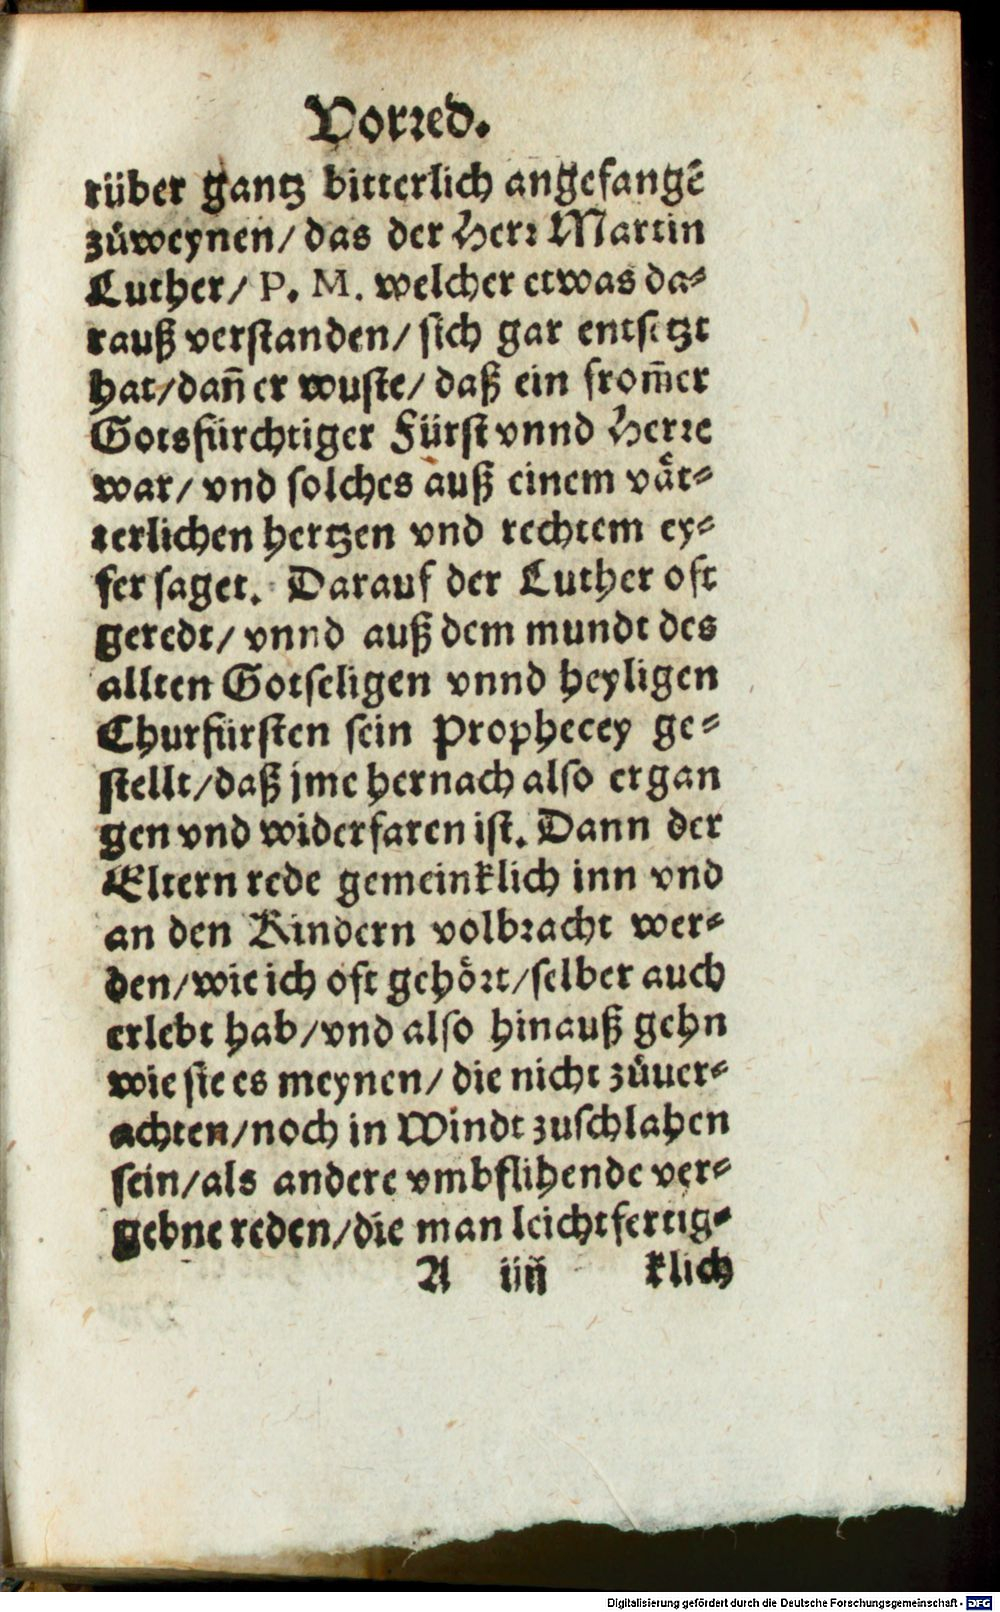 Vorred.
rüber gantz bitterlich angefangē
zůweynen/ das der Herr Martin
Luther/ P. M. welcher etwas da-
rauß verstanden/ sich gar entsetzt
hat/ dañ er wuste/ daß ein srom̃er
Gotsfürchtiger Fürst vnnd Herre
war/ vnd solches auß einem våt-
terlichen hertzen vnd rechtem ey-
fer saget. Darauf der Luther oft
geredt/ vnnd auß dem mundt des
allten Gotseligen vnnd heyligen
Churfürsten sein Prophecey ge-
stellt/ daß jme hernach also ergan
gen vnd widerfaren ist. Dann der
Eltern rede gemeinklich inn vnd
an den Kindern volbracht wer-
den/ wie ich oft gehört/ selber auch
erlebt hab/ vnd also hinauß gehn
wie sie es meynen/ die nicht zůuer-
achten/ noch in Windt zuschlahen
sein/ als andere vmbflihende ver-
gebne reden/ die man leichtfertig-
A iiij klich
Digitalisierung gefördert durch die Deutsche Forschungsgemeinschaft - DFG